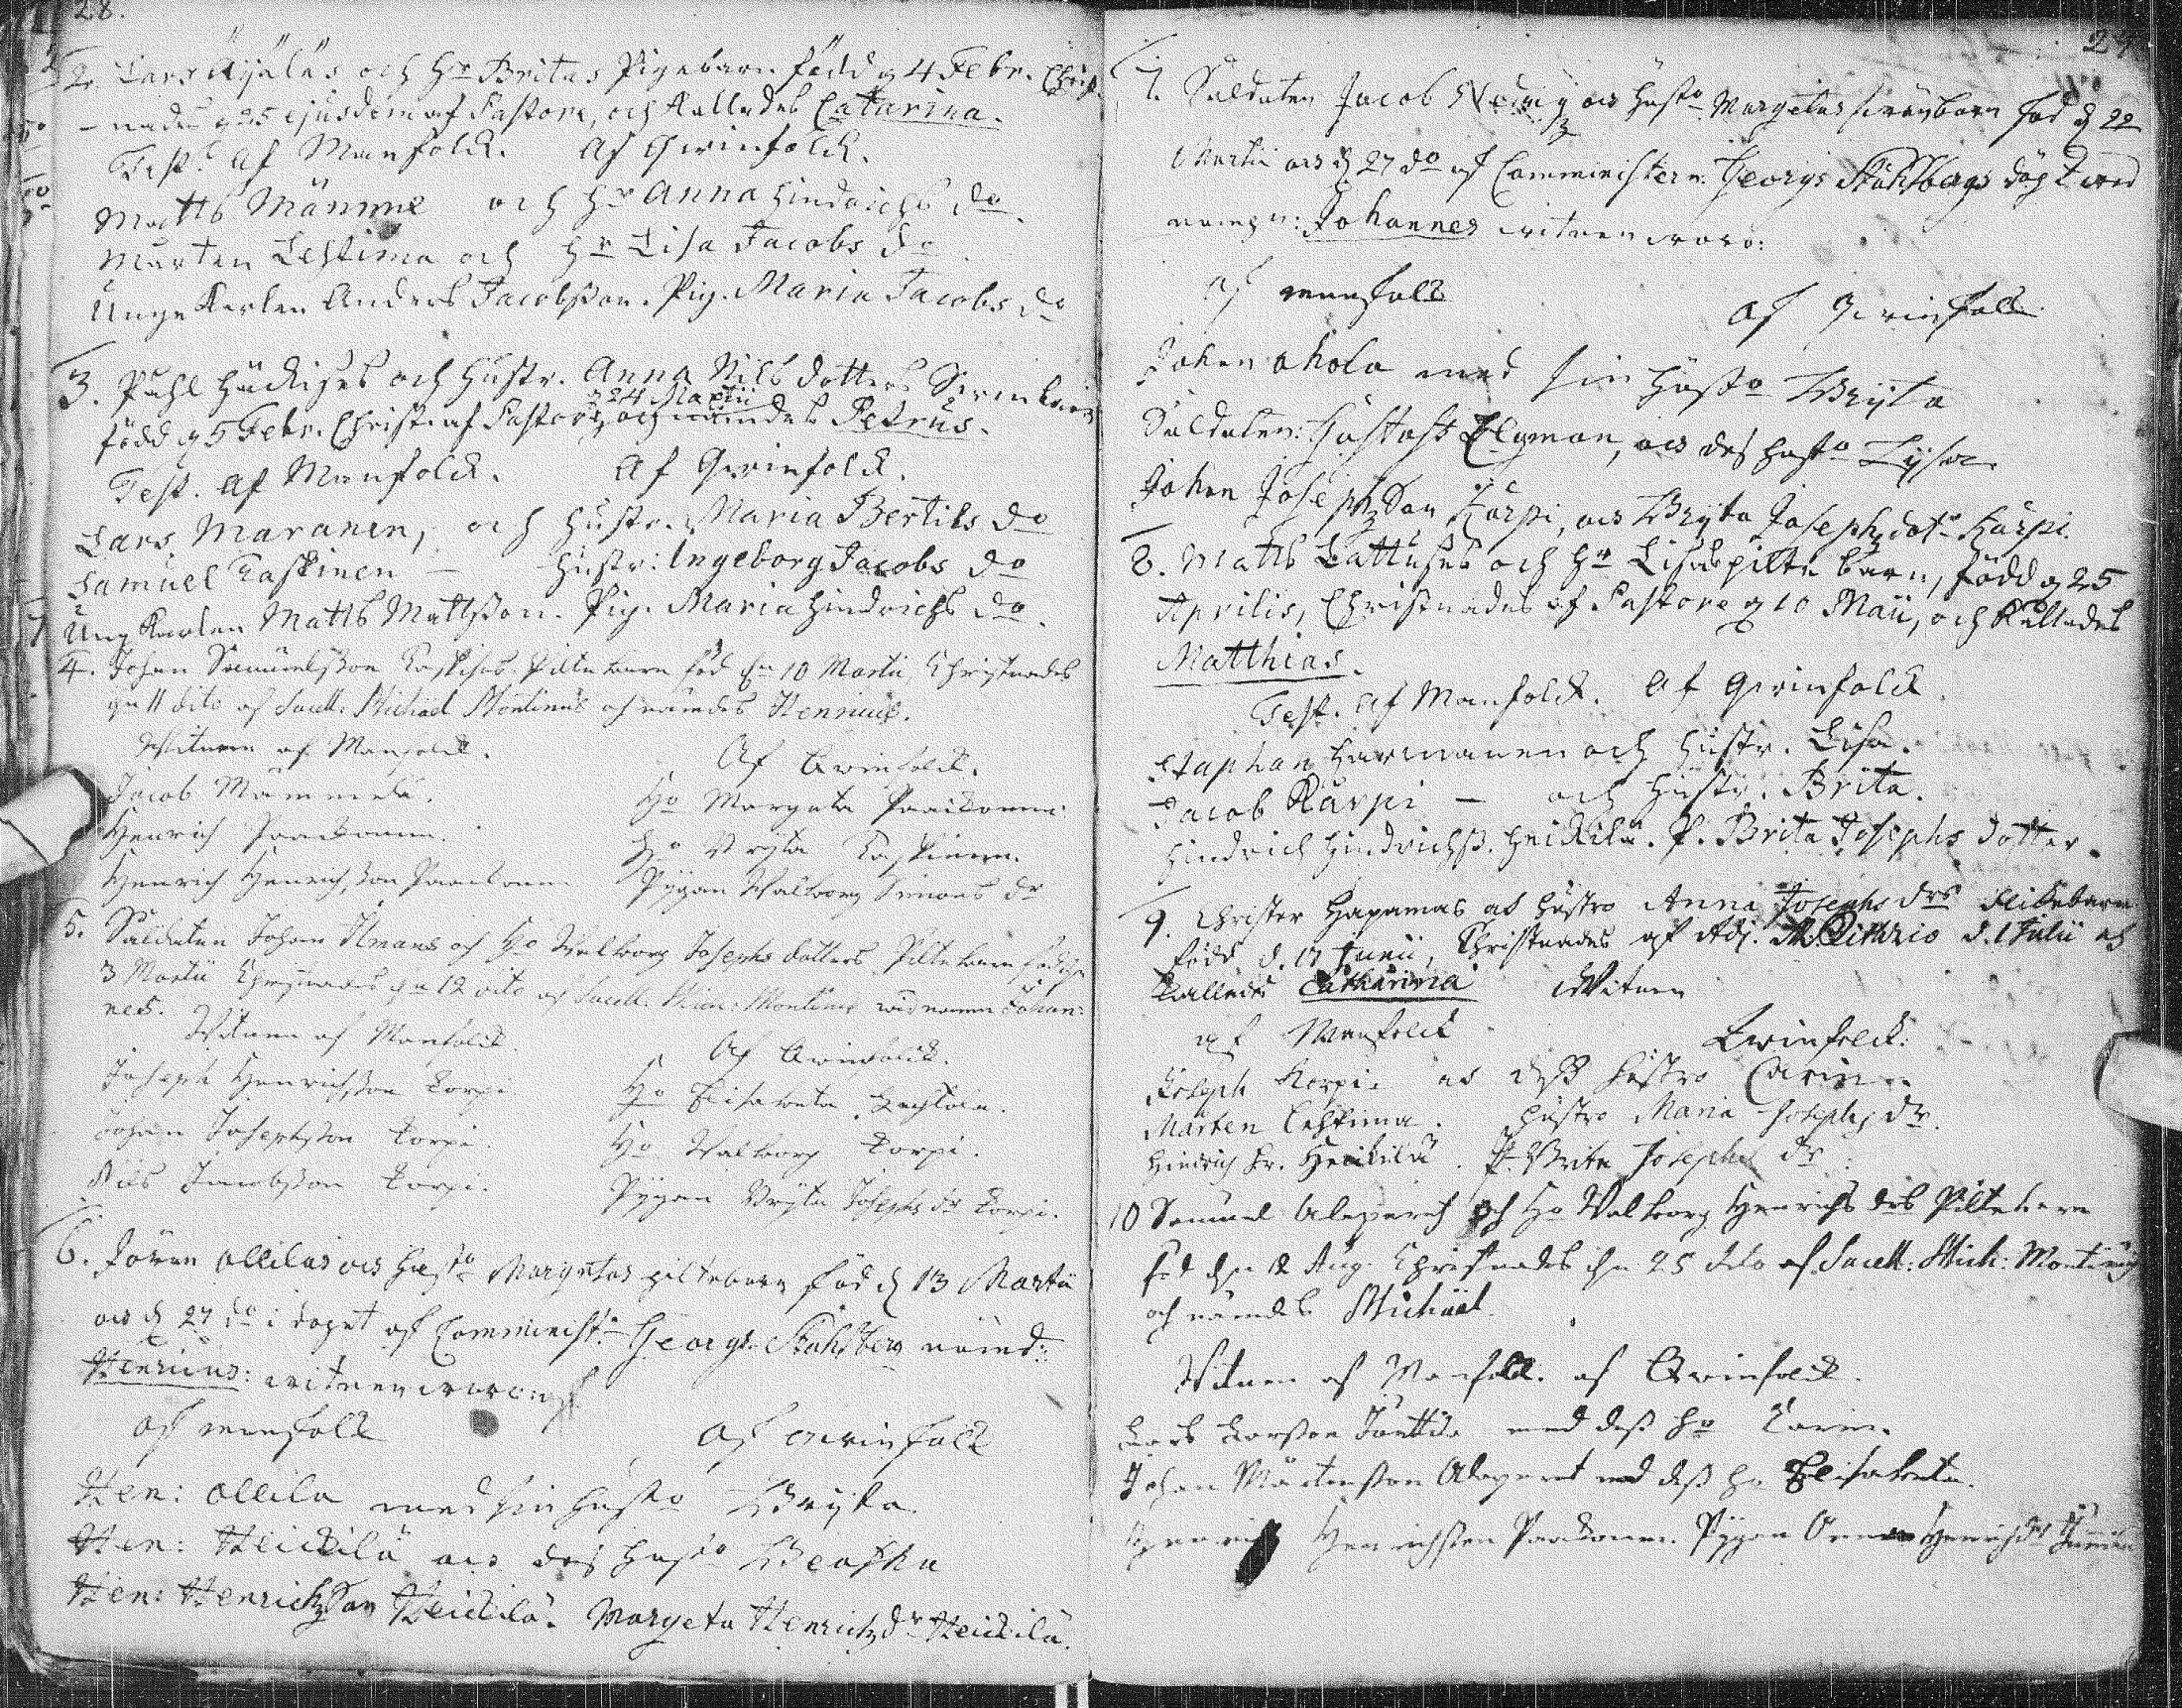 28.
2. Lars Äijäläs och Hr Britas Pigebarn född q 4 Febr. Christ-
nades q 25 ejusdem af Pastore, och kallades Catarina.
Test. af Manfolck. Af Qwinfolck.
Matts Mämme och Hr Anna Hindrichs do.
Mårten Lestima och Hr Lisa Jacobs do
Unge Karlen Anders Jacobsson. Pig. Maria Jacobs do
3. Påhl och Hustr. Anna Nils dotters
född q 5 Febr. Christ. af Pastore q 24 Martii och nämdes Petrus.
Test. af Manfolck. Af Qwinfolck.
Lars Maranen, och Hustr. Maria Bertils do
Samuel Kaskinen — Hustr: Ingeborg Jacobs do
Ung Karlen Matts Mattsson. Pig. Maria Hindrichs do.
4. Johan Samuelsson Piltebarn föd den 10 Martii, Christnades
den 11 dito af Sacell: Michael Montinus och nämdes Henricus.
Witnen af Manfolck. Af Qwinfolck.
Jacob Mämmelä. Ho Margeta Paackonen
Henrich Paackonen. Ho Bryta Kaskinen.
Henrich Henrichsson Paackonen Pygan Walborg Simons dr
5. Saldaten Johan Ilmans och Ho Walborg Josephs dotters Piltebarn föd den
3 Martii Christnades den 12 dito af Sacell: Mich: Montinus wid namn Johan-
nes.
Witnen af Manfolck. Af Qwinfolck.
Joseph Henrichsson Korpi Ho Elisabeta
Johan Josephsson Korpi. Ho Walborg Korpi.
Nils Jacobsson Korpi. Pygan Bryta Josephs dr Korpi.
6. Jören Ollilas och Hustro Margetas pilteborn föd d 13 Martii
och d 27 do i döpet af Comminist. Georg: Ståhlberg nämd:
Henricus: witnen woro:
af manfolck af qwinfolck
Hen: Ollila med sin hustro Bryta
Hen: Heickilä och des hustro Beatha
Hen: Henrichsson Heickilä. Margeta Henrichsdr Heickilä.
29
7. Saldaten Jacob och Hustro Margetas swänbarn föd d 22
Martii och d 27 do af Comministern: Georgi Ståhlbergs döpt med
namn: Johannes witnen woro:
af manfolck af qwinfolck
Johan Ahola med sin Hustro Bryta
Saldaten: Gustaf Elgman, och des hustro Lysa
Johan Josephsson Karpi, och Bryta Josephsdotr Karpi.
8. Matts och Hr Lisas pilte barn, född q 25
Aprilis, Christnades af Pastore q 10 Maii, och kallades
Matthias.
Test. af Manfolck. Af Qwinfolck.
Staphan Harmanen och Hustr. Lisa.
Jacob Karpi — och Hustr. Brita.
Hindrich Hindrichss. Heickilä. P. Brita Josephs dotter.
9. Christer Hapamas och hustro Anna Josephs drs flickebarn
född d. 17 Junii, Christnades af Adj. M. Lithzio d. 1 Julii och
kallades Catharina Witnen
af Manfolck Qwinfolck.
Joseph Korpi och dess hustro Carin.
Mårten Lestima. hustro Maria Josephs dr.
Hindrich Hr. Heickilä. P. Brita Josephs dr.
10 Samuel och Ho Walborg Henrichs drs Piltebarn
föd den 12 Aug. Christnades den 25 dito af Sacell: Mich: Montinus
och nämdes Michael.
Witnen af Manfolck. af Qwinfolck.
Lars Larsson med dess ho Karin.
Johan Mårtensson med dess ho Elisabeta.
Henrich Henrichsson Paackonen. Pygan Anna Henrichsdr